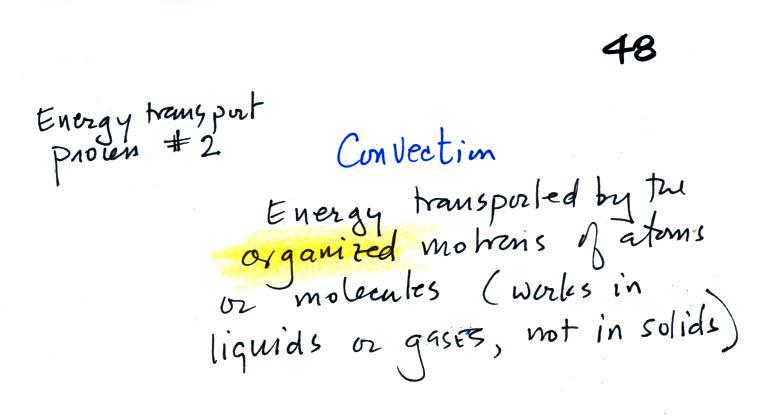 48
Energy transport
process # 2
Convection
Energy transported by the
organized motions of atoms
or molecules (works in
liquids or gases, not in solids)